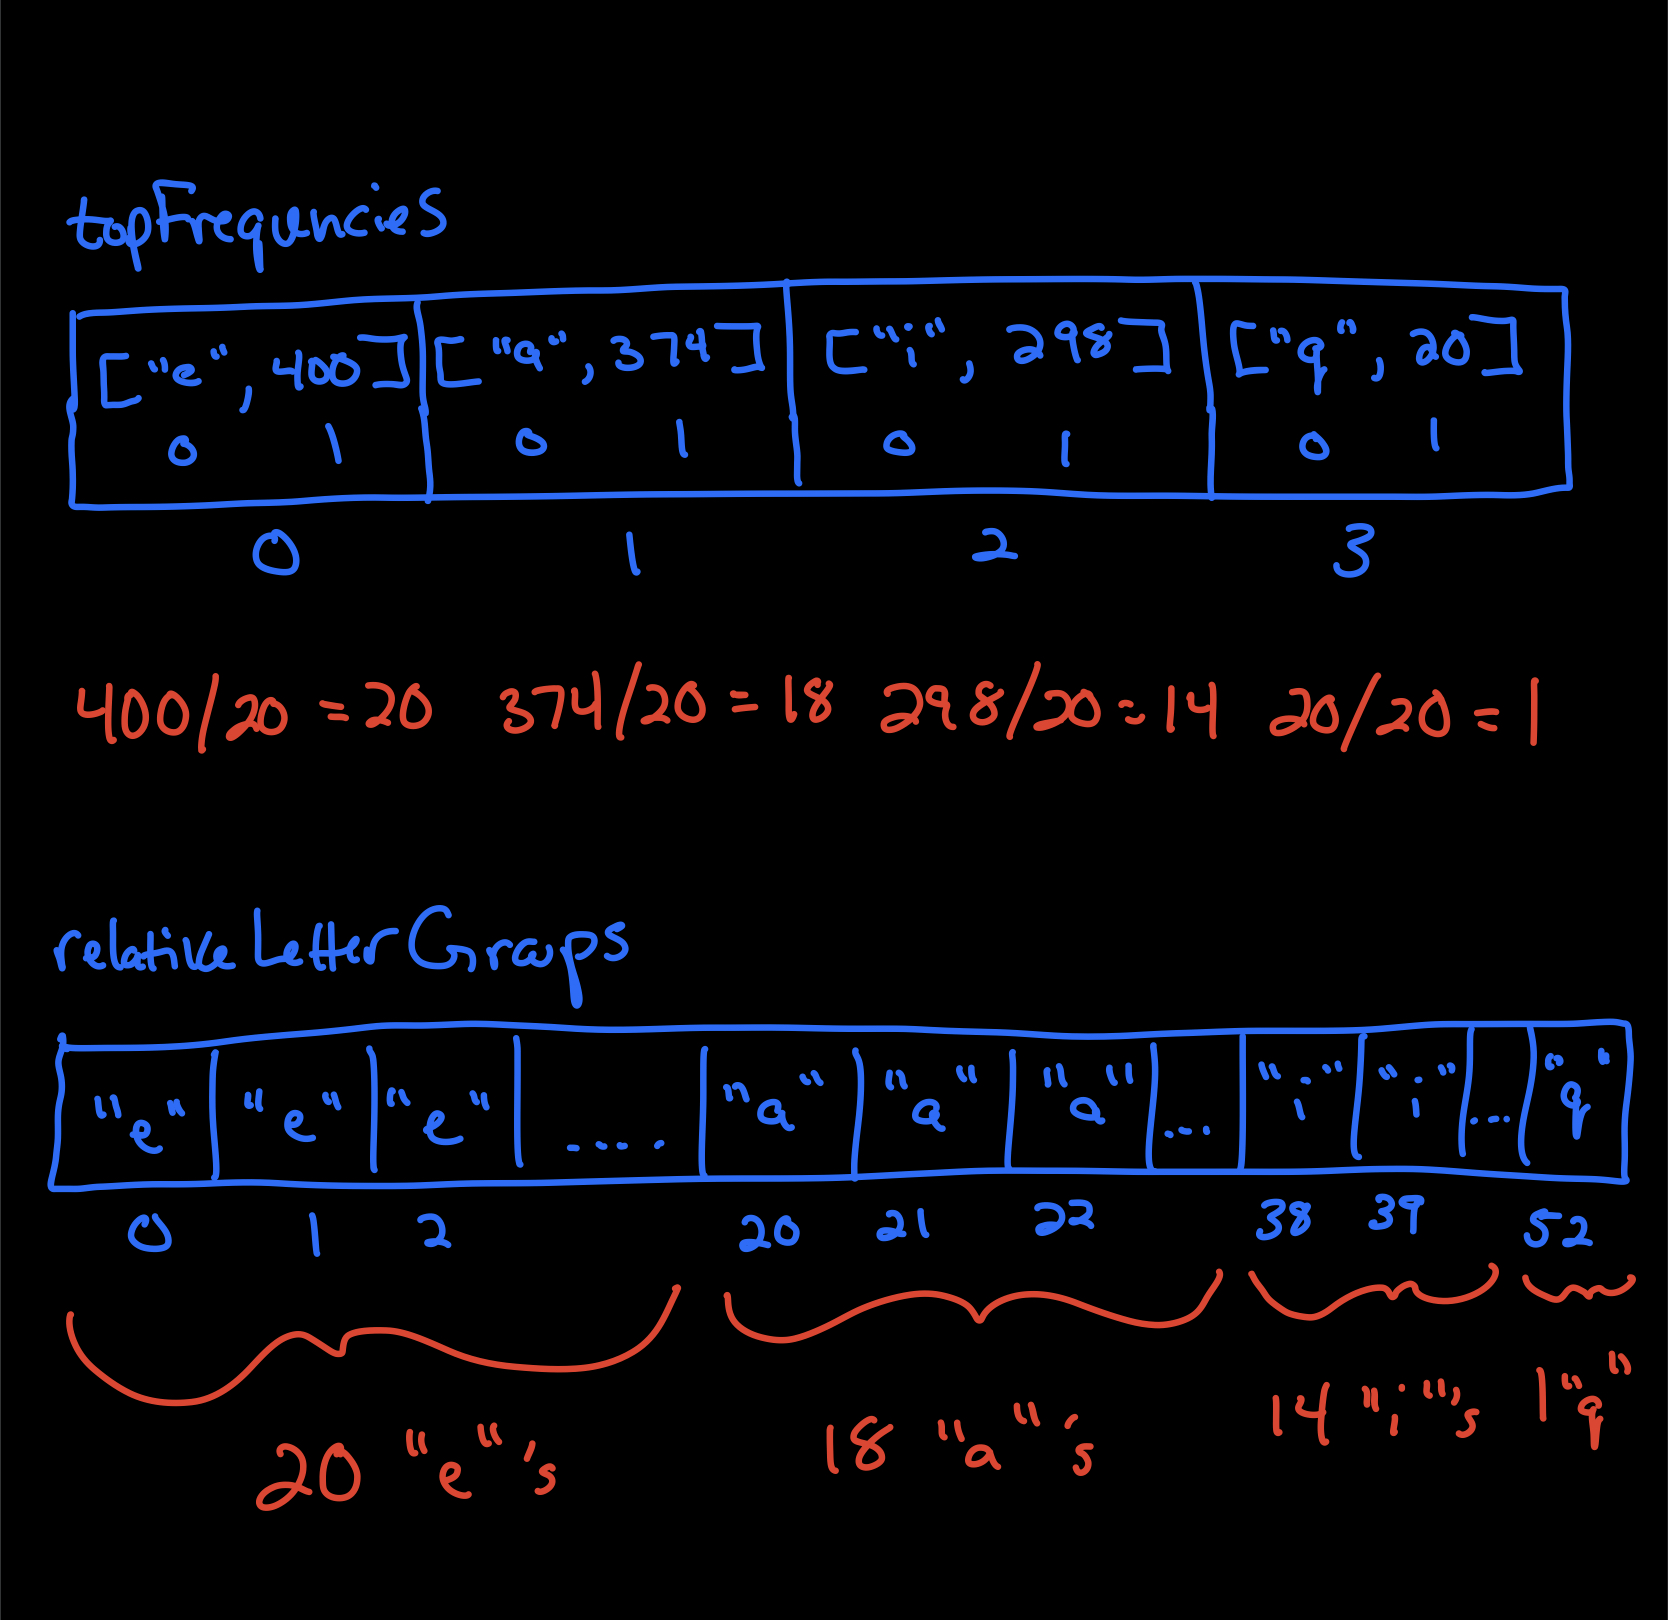 topFrequncies
["e", 400] ["a", 374] ["i", 298] ["q", 20]
0 1 0 1 0 1 0 1
0 1 2 3
400/20 = 20 374/20 = 18 298/20 = 14 20/20 = 1
relativeLetterGroups
"e" "e" "e" .... "a" "a" "a" ... "i" "i" ... "q"
0 1 2 20 21 22 38 39 52
20 "e"'s 18 "a"'s 14 "i"'s 1 "q"